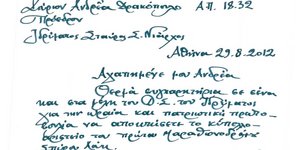 Κύριον Ανδρέα Δρακόπουλο Α.Π. 18.32
Πρόεδρον
Ιδρύματος Σταύρος Σ. Νιάρχος
Αθήνα 29.8.2012
Αγαπημένε μου Ανδρέα
Θερμά συγχαρητήρια σε σένα
και στα μέλη του Δ.Σ. του Ιδρύματος
για την ωραία και πατριωτική πρωτο-
βουλία να αποκτήσετε το κύπελο
του πρώτου Μαραθωνοδρόμου
Σπύρου Λούη.